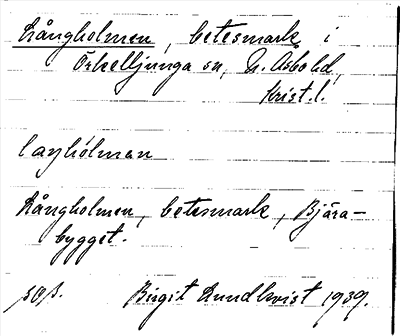 Långholmen, betesmark i
Örkelljunga sn, N. Åsbo hd,
Krist. l.
layhólman
Långholmen, betesmark, Bjära-
bygget.
Birgit Lundkvist 1939.